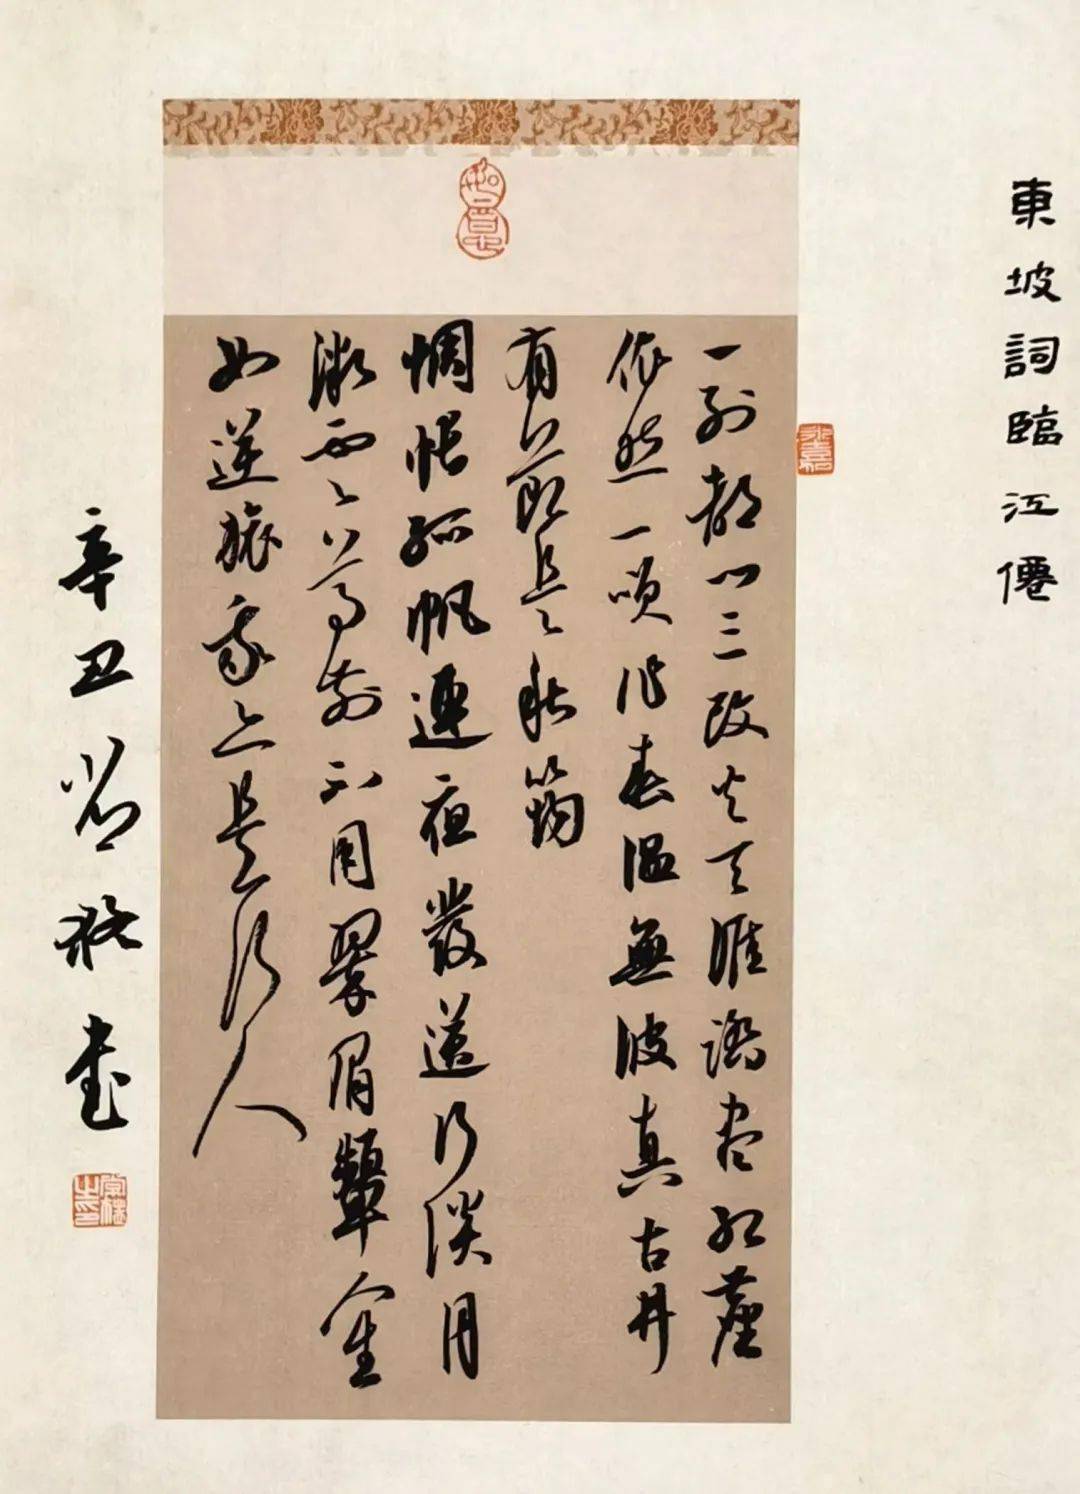 東坡詞臨江僊
永嘉
如意
一別都門三改火天涯踏盡紅塵
依然一咲作春溫無波真古井
有節是秋筠
惆悵孤帆連夜發送行淡月
微雲尊前不用翠眉顰人生
如逆旅我亦是行人
辛丑 書